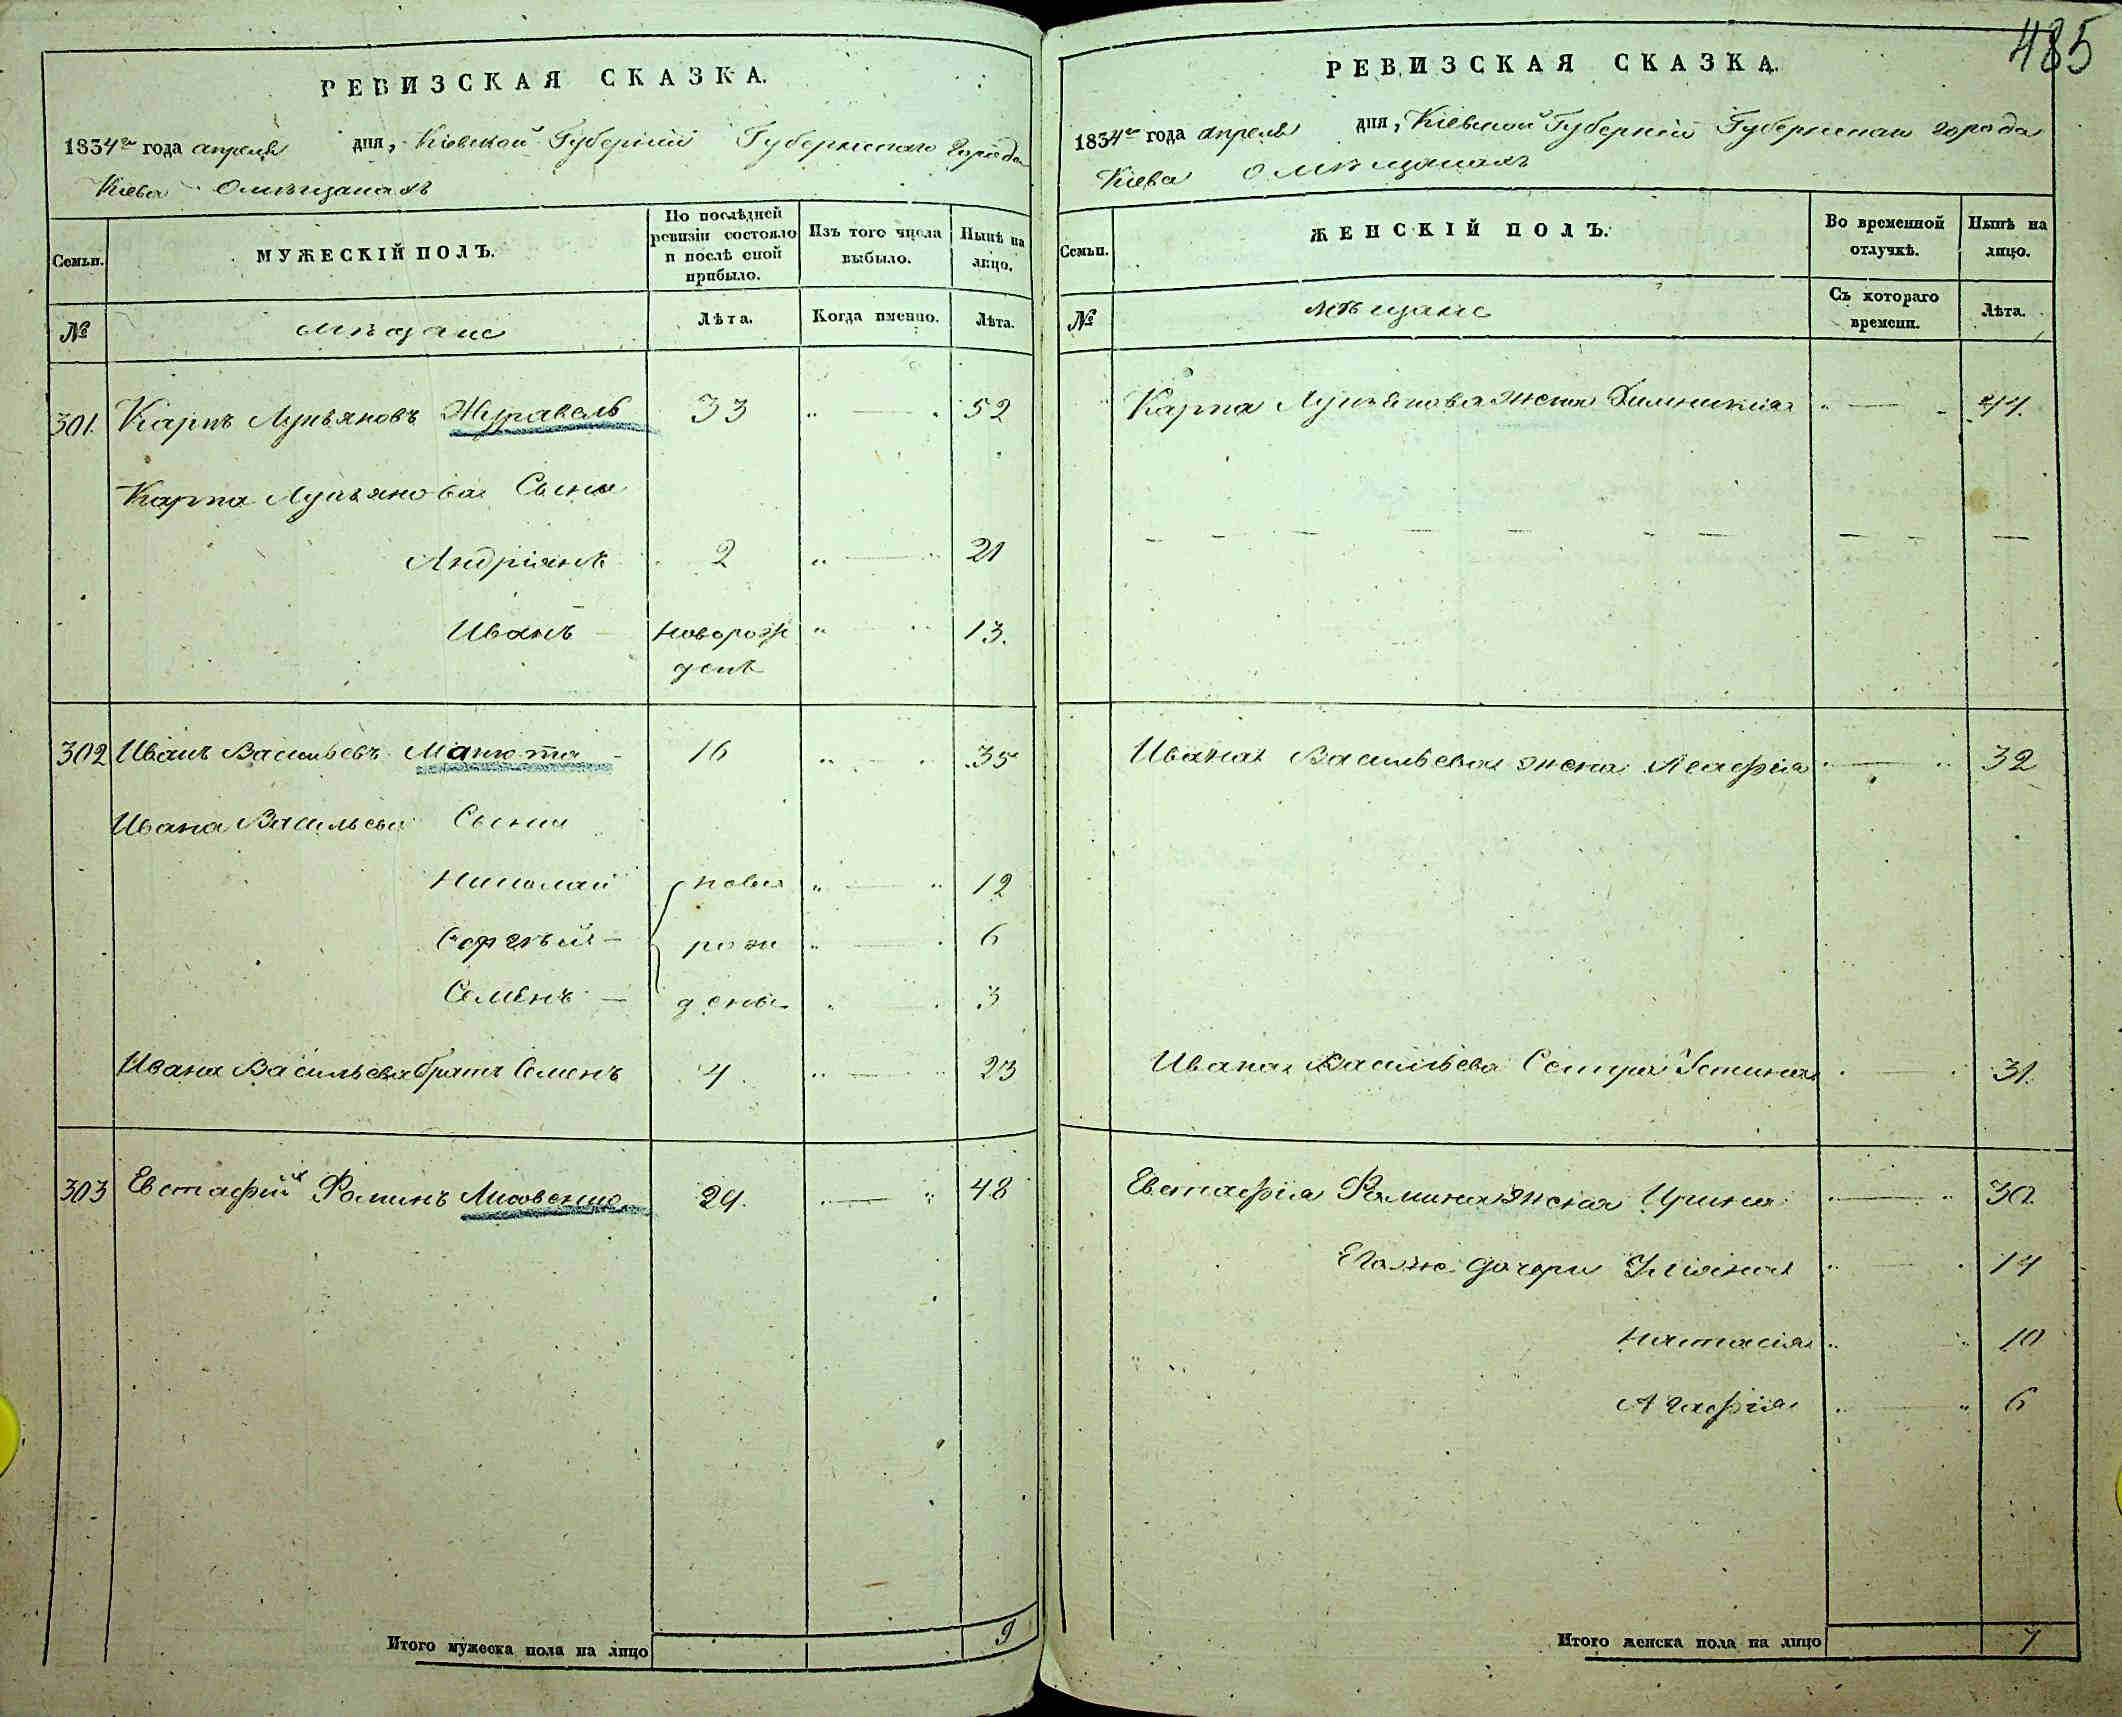 РЕВИЗСКАЯ СКАЗКА.
1834го года апреля дня, Кіевской Губерніи Губернскаго города
Кіева О мѣщанахъ
Семьи.
МУЖЕСКІЙ ПОЛЪ.
По послѣдней ревизіи состояло и послѣ оной прибыло.
Изъ того числа выбыло.
Нынѣ на лицо.
№
мѣщане
Лѣта.
Когда именно.
Лѣта.
301. Карпъ Лукьяновъ Журавель 33 " — . 52
Карпа Лукьянова Сыны
Андріянъ 2 " — " 21
Иванъ новорож 13.
денъ
302 Иванъ Васильевъ Манюта 16 " — . 35
Ивана Васильева Сыны
Николай ново " — " 12
Сергѣй — рож " — . 6
Семенъ — дены . — . 3
Ивана Васильева братъ Семенъ 4. " — " 23
303 Евстафий Фоминъ 29. . — " 48
Итого мужеска пола на лицо 9
485
РЕВИЗСКАЯ СКАЗКА.
1834го года апреля дня, Кіевской Губерніи Губернскаго города
Кіева О мѣщанахъ
Семьи.
ЖЕНСКІЙ ПОЛЪ.
Во временной отлучкѣ.
Нынѣ на лицо.
№
мѣщане
Съ котораго времени.
Лѣта.
Карпа Лукьянова жена " — . 44.
— — — — — — — — — —
Ивана Васильева жена Агафія . — " 32
Ивана Васильева Сестра Устина . — . 31.
Евстафія Фомина жена Ирина " — " 30.
Его же дочери Уліяна " — . 14
Настасія " — " 10
Агафія . — " 6
Итого женска пола на лицо 7